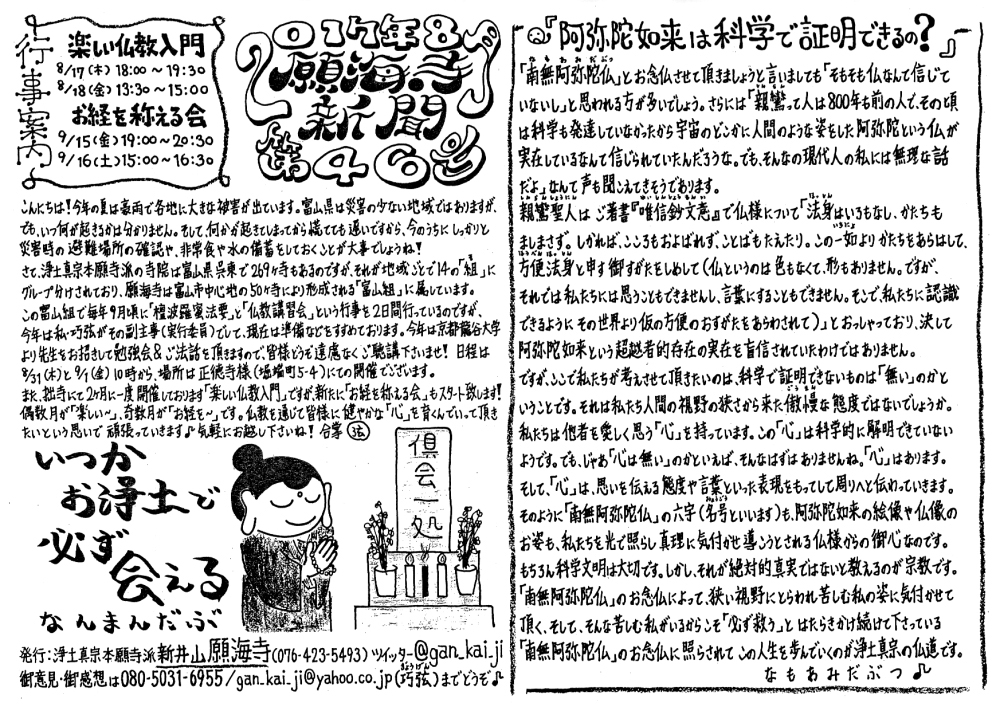 行事案内
楽しい仏教入門
8/17(木) 18:00～19:30
8/18(金) 13:30～15:00
お経を称える会
9/15(金) 19:00～20:30
9/16(土) 15:00～16:30
2017年8月
願海寺
新聞
第46号
こんにちは！今年の夏は豪雨で各地に大きな被害が出ています。富山県は災害の少ない地域ではありますが、
でも、いつ何が起きるかは分りません。そして、何かが起きてしまってから慌てても遅いですから、今のうちにしっかりと
災害時の避難場所の確認や、非常食や水の備蓄をしておくことが大事でしょうね！
さて、浄土真宗本願寺派の寺院は富山県呉東で269ヶ寺もあるのですが、それが地域ごとで14の「組」に
グループ分けされており、願海寺は富山市中心地の50ヶ寺により形成される「富山組」に属しています。
この富山組で毎年9月頃に「檀波羅蜜法要」と「仏教講習会」という行事を2日間行っているのですが、
今年は私・巧弦がその副主事(実行委員)でして、現在は準備などをすすめております。今年は京都龍谷大学
より先生をお招きして勉強会&ご法話を頂きますので、皆様どうぞ遠慮なくご聴講下さいませ！日程は
8/31(木)と9/1(金)10時から、場所は正徳寺様(堀端町5-4)にての開催でございます。
また、拙寺にて2ヶ月に一度開催しております「楽しい仏教入門」ですが、新たに「お経を称える会」もスタート致します！
偶数月が「楽しい～」、奇数月が「お経を～」です。仏教を通じて皆様に健やかな「心」を育くんでいって頂き
たいという思いで頑張っていきます♪気軽にお越し下さいね！合掌 弦
いつか
お浄土で
必ず
会える
なんまんだぶ
倶会一処
発行:浄土真宗本願寺派 新井山 願海寺(076-423-5493) ツイッター@gan_kai_ji
御意見・御感想は080-5031-6955/gan_kai_ji@yahoo.co.jp(巧弦)までどうぞ♪
『阿弥陀如来は科学で証明できるの？』
「南無阿弥陀仏」とお念仏させて頂きましょうと言いましても「そもそも仏なんて信じて
いないし」と思われる方が多いでしょう。さらには「親鸞って人は800年も前の人で、その頃
は科学も発達していなかったから宇宙のどこかに人間のような姿をした阿弥陀という仏が
実在しているなんて信じられていたんだろうな。でも、そんなの現代人の私には無理な話
だよ」なんて声も聞こえてきそうであります。
親鸞聖人はご著書『唯信鈔文意』で仏様について「法身はいろもなし、かたちも
ましまさず。しかれば、こころもおよばれず、ことばもたえたり。この一如よりかたちをあらはして、
方便法身と申す御すがたをしめして(仏というのは色もなくて、形もありません。ですが、
それでは私たちには思うこともできませんし、言葉にすることもできません。そこで、私たちに認識
できるようにその世界より仮の方便のおすがたをあらわされて)」とおっしゃっており、決して
阿弥陀如来という超越者的存在の実在を盲信されていたわけではありません。
ですが、ここで私たちが考えさせて頂きたいのは、科学で証明できないものは「無い」のかと
いうことです。それは私たち人間の視野の狭さから来た傲慢な態度ではないでしょうか。
私たちは他者を愛しく思う「心」を持っています。この「心」は科学的に解明できていない
ようです。でも、じゃあ「心は無い」のかといえば、そんなはずはありませんね。「心」はあります。
そして、「心」は、思いを伝える態度や言葉といった表現をもってして周りへと伝わっていきます。
そのように「南無阿弥陀仏」の六字(名号といいます)も、阿弥陀如来の絵像や仏像の
お姿も、私たちを光で照らし真理に気付かせ導こうとされる仏様からの御心なのです。
もちろん科学文明は大切です。しかし、それが絶対的真実ではないと教えるのが宗教です。
「南無阿弥陀仏」のお念仏によって、狭い視野にとらわれ苦しむ私の姿に気付かせて
頂く、そして、そんな苦しむ私がいるからこそ「必ず救う」とはたらきかけ続けて下さっている
「南無阿弥陀仏」のお念仏に照らされてこの人生を歩んでいくのが浄土真宗の仏道です。
なもあみだぶつ♪